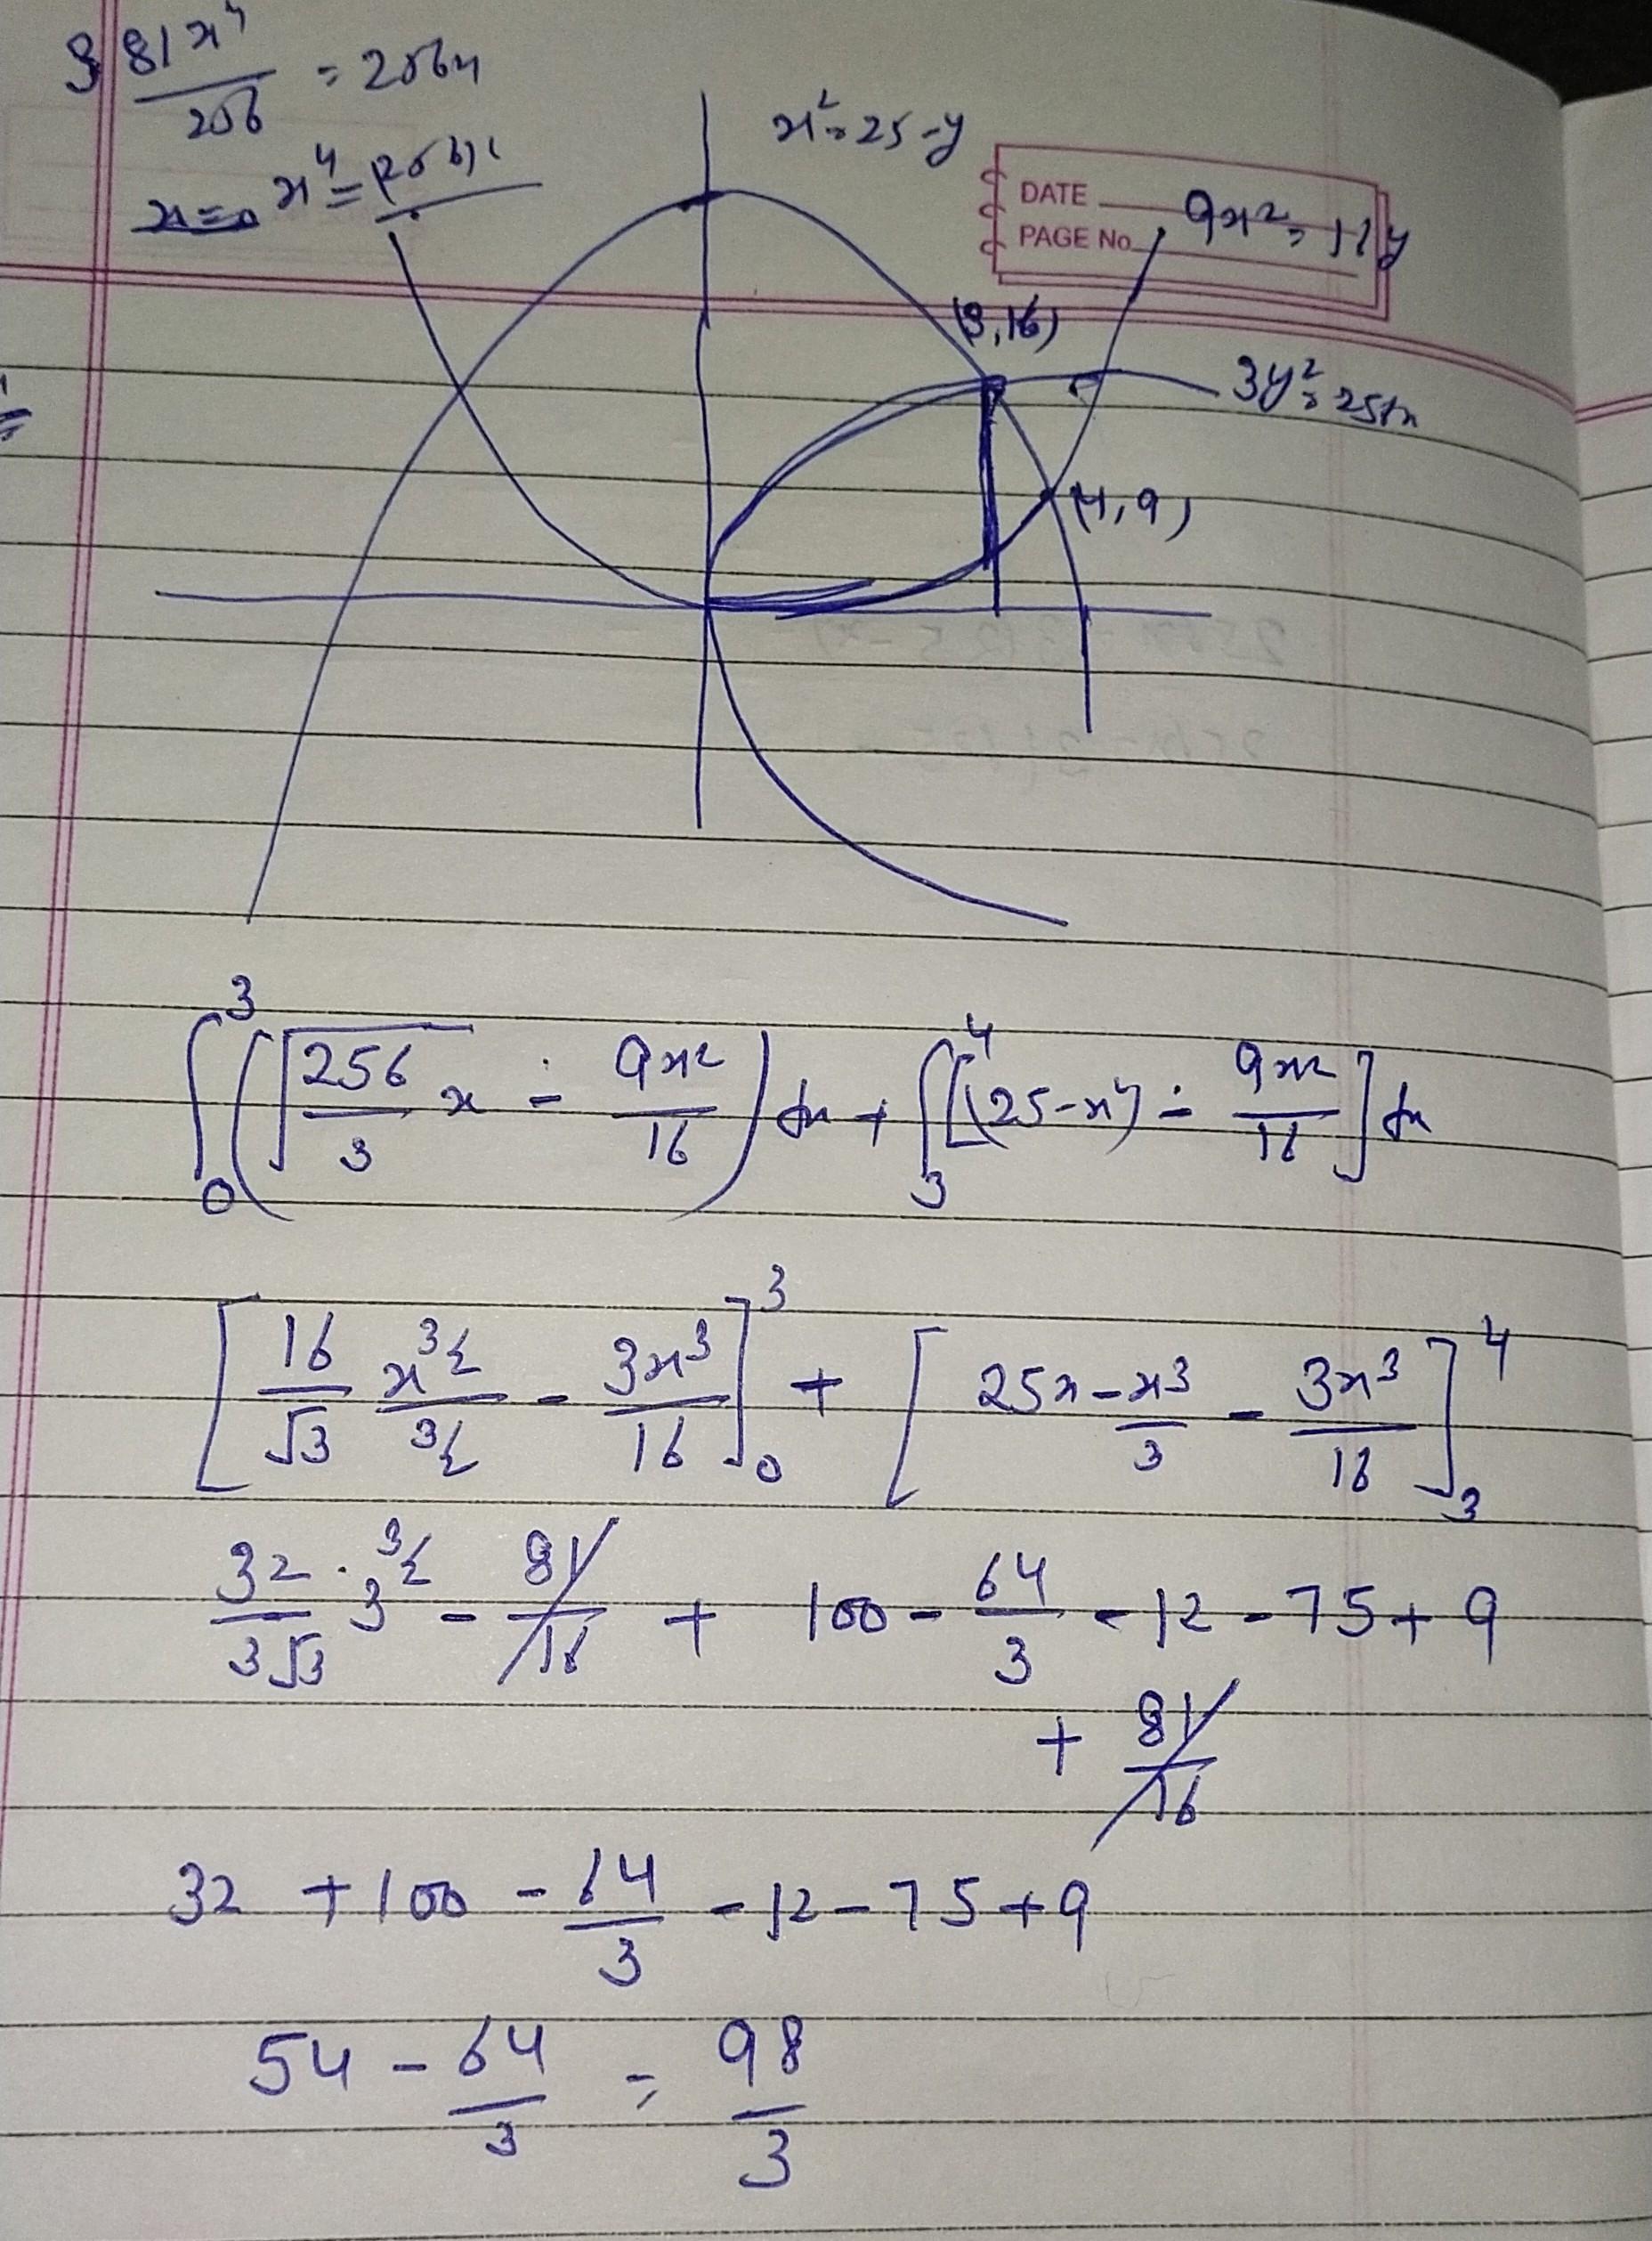 81x⁴/256 = 256x
x=0 x⁴ =
x² = 25-y
DATE
PAGE No.
9x² = 16y
(3,16)
3y² = 256x
(4,9)
∫₀³ (√(256/3 x) - 9x²/16) dx + ∫₃⁴ [(25-x²) - 9x²/16] dx
[16/√3 x^(3/2)/(3/2) - 3x³/16]₀³ + [25x - x³/3 - 3x³/16]₃⁴
32/(3√3) · 3^(3/2) - 81/16 + 100 - 64/3 - 12 - 75 + 9
+ 81/16
32 + 100 - 64/3 - 12 - 75 + 9
54 - 64/3 = 98/3